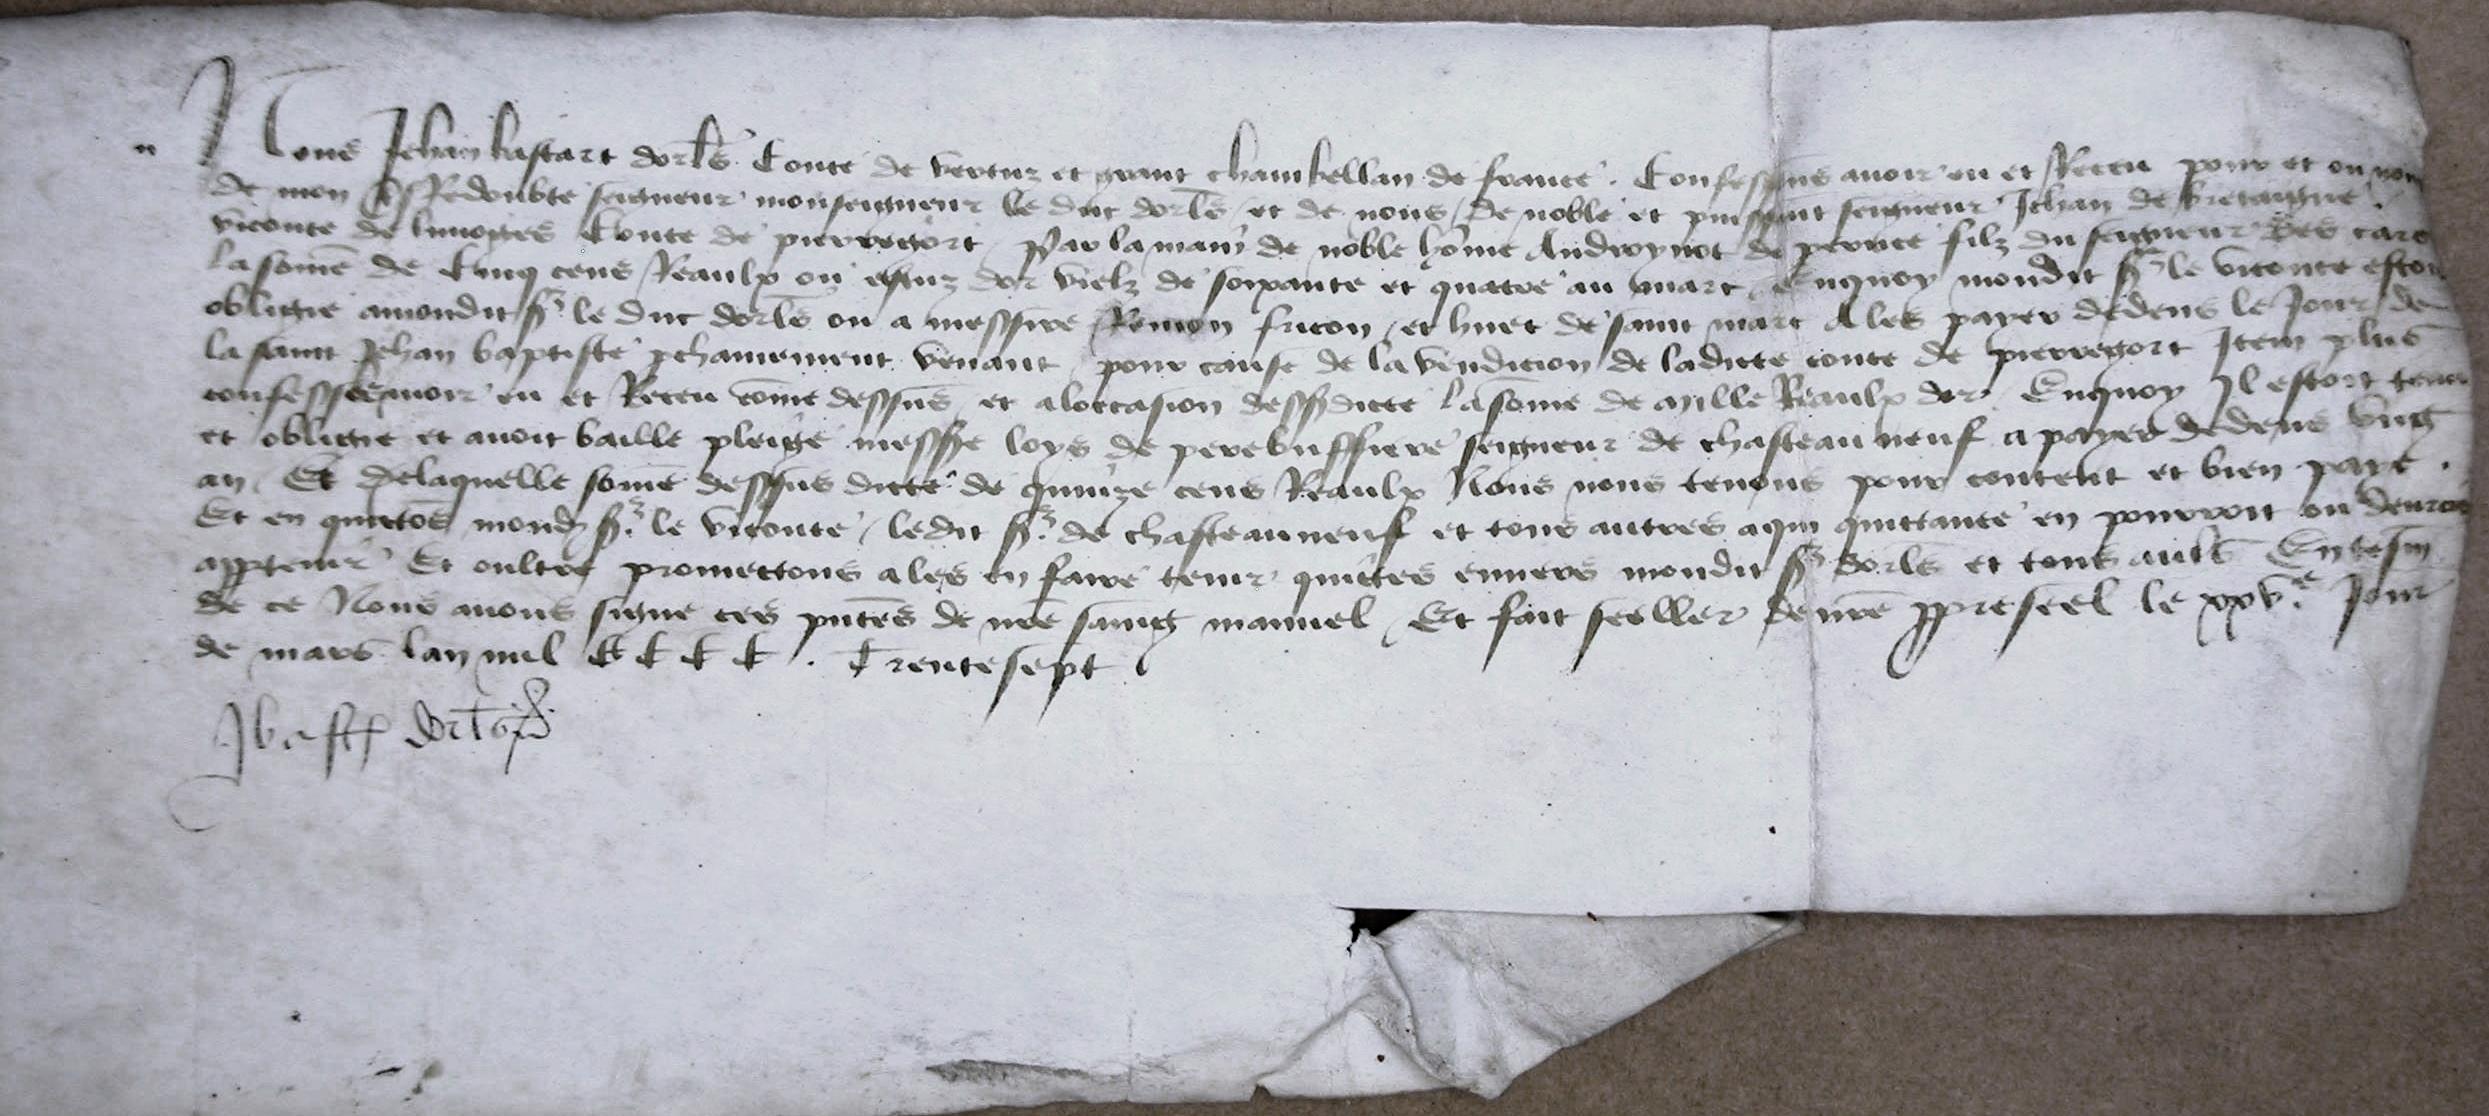 Nous Jehan bastart dorls Conte de vertuz et grant chambellan de france . Confessons auoir eu et Receu pour et ou nom
de mon Redoubte seigneur monseigneur le duc dorls et de nous / de noble et puissant seigneur Jehan de bretaigne .
viconte de limoges Conte de pierregort / Par la main de noble home Androynot de peruce filz du seigneur des cars
la some de Cinq cens Reaulx ou escuz dor vielz de soixante et quatre au marc / Enquoy mondit sr le viconte estoit
obligie amondit sr le duc dorls ou a messire Remon fricon / et huet de saint mart A les payer dedens le Jour de
la saint Jehan baptiste pchainement venant / pour cause de la vendicion de ladicte conte de pierregort Item plus
confessons auoir eu et Receu come dessus / et a loccasion dessusdicte la some de mille Reaulx dor / Enquoy Il estoit tenu
et obligie et auoit baille pleige messire loys de perebuffiere seigneur de chasteau neuf a payer dedens ung
an / Et delaquelle some dessus dicte de quinze cens Reaulx Nous nous tenons pour content et bien paye .
Et en quictos mond sr le viconte / ledit sr de chasteauneuf et tous autres aqui quittance en pourroit ou deuroit
apptenir Et oultre promettons a les en faire tenir quittes enuers mondit sr dorls et tous autrs En tesm
de ce Nous auons signe ces pntes de nre saing manuel / Et fait seeller de nre ppre seel le xxve Jour
de mars lan mil CCCC . Trentesept
J bast dorls